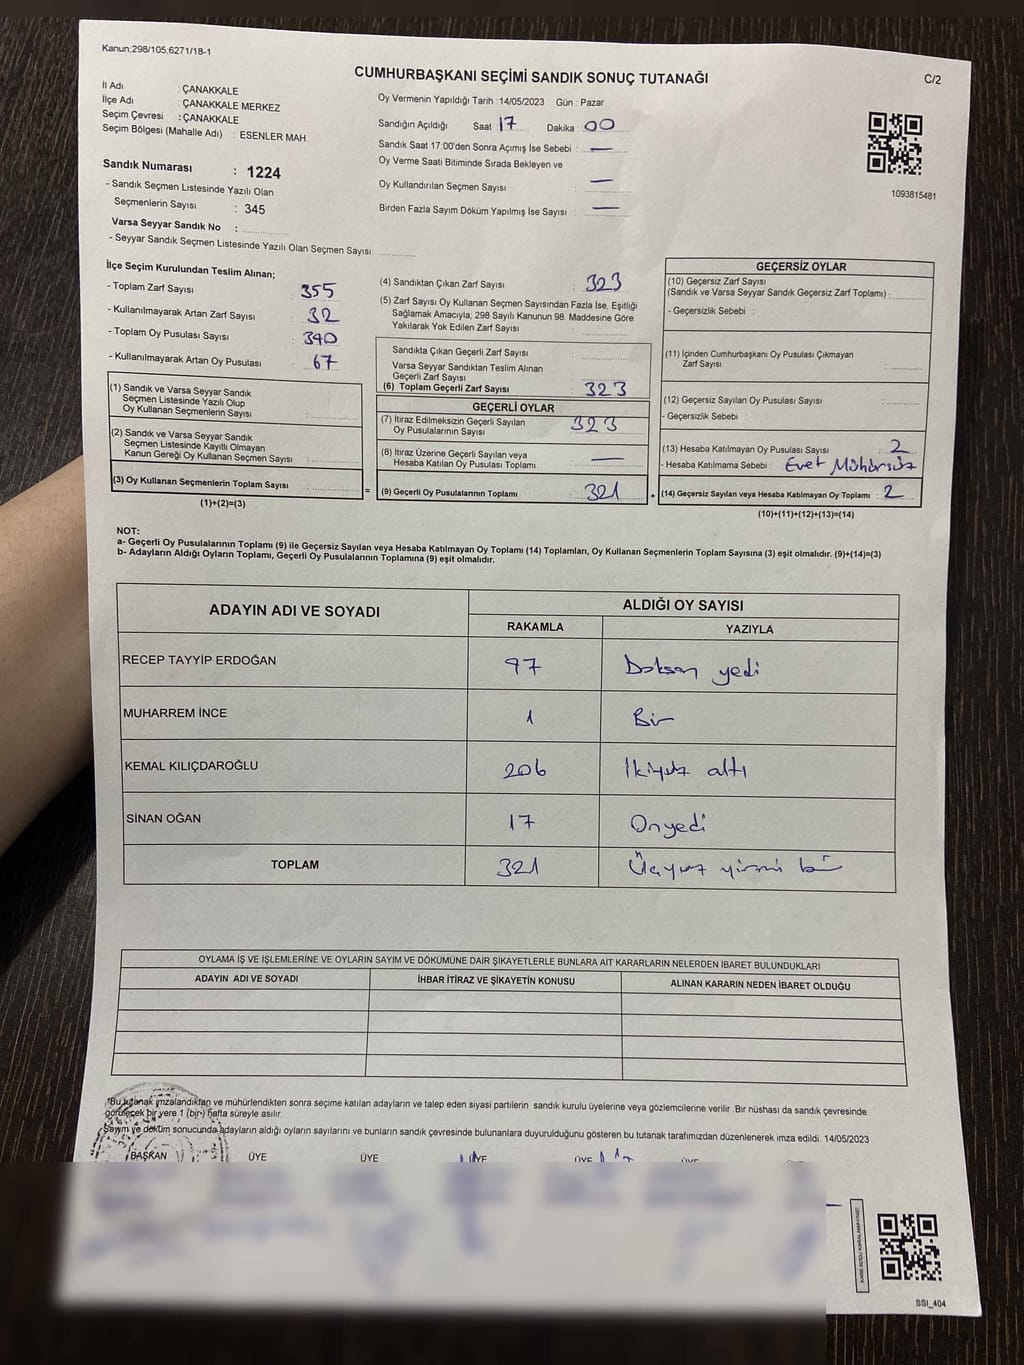 Kanun;298/105;6271/18-1
C/2
CUMHURBAŞKANI SEÇİMİ SANDIK SONUÇ TUTANAĞI
İl Adı : ÇANAKKALE
İlçe Adı : ÇANAKKALE MERKEZ
Seçim Çevresi : ÇANAKKALE
Seçim Bölgesi (Mahalle Adı) : ESENLER MAH.
Sandık Numarası : 1224
- Sandık Seçmen Listesinde Yazılı Olan
Seçmenlerin Sayısı : 345
Varsa Seyyar Sandık No :
- Seyyar Sandık Seçmen Listesinde Yazılı Olan Seçmen Sayısı:
Oy Vermenin Yapıldığı Tarih : 14/05/2023 Gün : Pazar
Sandığın Açıldığı Saat 17 Dakika : 00
Sandık Saat 17:00'den Sonra Açımış İse Sebebi : —
Oy Verme Saati Bitiminde Sırada Bekleyen ve
Oy Kullandırılan Seçmen Sayısı : —
Birden Fazla Sayım Döküm Yapılmış İse Sayısı : —
1093815481
İlçe Seçim Kurulundan Teslim Alınan;
- Toplam Zarf Sayısı : 355
- Kullanılmayarak Artan Zarf Sayısı : 32
- Toplam Oy Pusulası Sayısı : 390
- Kullanılmayarak Artan Oy Pusulası : 67
(1) Sandık ve Varsa Seyyar Sandık
Seçmen Listesinde Yazılı Olup
Oy Kullanan Seçmenlerin Sayısı :
(2) Sandık ve Varsa Seyyar Sandık
Seçmen Listesinde Kayıtlı Olmayan
Kanun Gereği Oy Kullanan Seçmen Sayısı :
(3) Oy Kullanan Seçmenlerin Toplam Sayısı :
(1)+(2)=(3)
(4) Sandıktan Çıkan Zarf Sayısı : 323
(5) Zarf Sayısı Oy Kullanan Seçmen Sayısından Fazla İse, Eşitliği
Sağlamak Amacıyla; 298 Sayılı Kanunun 98. Maddesine Göre
Yakılarak Yok Edilen Zarf Sayısı :
Sandıkta Çıkan Geçerli Zarf Sayısı :
Varsa Seyyar Sandıktan Teslim Alınan
Geçerli Zarf Sayısı :
(6) Toplam Geçerli Zarf Sayısı : 323
GEÇERLİ OYLAR
(7) İtiraz Edilmeksizin Geçerli Sayılan
Oy Pusulalarının Sayısı : 323
(8) İtiraz Üzerine Geçerli Sayılan veya
Hesaba Katılan Oy Pusulası Toplamı : —
= (9) Geçerli Oy Pusulalarının Toplamı : 321 +
GEÇERSİZ OYLAR
(10) Geçersiz Zarf Sayısı
(Sandık ve Varsa Seyyar Sandık Geçersiz Zarf Toplamı) :
- Geçersizlik Sebebi :
(11) İçinden Cumhurbaşkanı Oy Pusulası Çıkmayan
Zarf Sayısı :
(12) Geçersiz Sayılan Oy Pusulası Sayısı :
- Geçersizlik Sebebi :
(13) Hesaba Katılmayan Oy Pusulası Sayısı : 2
- Hesaba Katılmama Sebebi : Evet Mühürsüz
(14) Geçersiz Sayılan veya Hesaba Katılmayan Oy Toplamı : 2
(10)+(11)+(12)+(13)=(14)
NOT:
a- Geçerli Oy Pusulalarının Toplamı (9) ile Geçersiz Sayılan veya Hesaba Katılmayan Oy Toplamı (14) Toplamları, Oy Kullanan Seçmenlerin Toplam Sayısına (3) eşit olmalıdır. (9)+(14)=(3)
b- Adayların Aldığı Oyların Toplamı, Geçerli Oy Pusulalarının Toplamına (9) eşit olmalıdır.
ADAYIN ADI VE SOYADI ALDIĞI OY SAYISI
RAKAMLA YAZIYLA
RECEP TAYYİP ERDOĞAN 97 Doksan yedi
MUHARREM İNCE 1 Bir
KEMAL KILIÇDAROĞLU 206 İkiyüz altı
SİNAN OĞAN 17 Onyedi
TOPLAM 321 Üçyüz yirmi bir
OYLAMA İŞ VE İŞLEMLERİNE VE OYLARIN SAYIM VE DÖKÜMÜNE DAİR ŞİKAYETLERLE BUNLARA AİT KARARLARIN NELERDEN İBARET BULUNDUKLARI
ADAYIN ADI VE SOYADI İHBAR İTİRAZ VE ŞİKAYETİN KONUSU ALINAN KARARIN NEDEN İBARET OLDUĞU
*Bu tutanak imzalandıktan ve mühürlendikten sonra seçime katılan adayların ve talep eden siyasi partilerin sandık kurulu üyelerine veya gözlemcilerine verilir. Bir nüshası da sandık çevresinde
görülecek bir yere 1 (bir) hafta süreyle asılır.
Sayım ve döküm sonucunda adayların aldığı oyların sayılarını ve bunların sandık çevresinde bulunanlara duyurulduğunu gösteren bu tutanak tarafımızdan düzenlenerek imza edildi. 14/05/2023
BAŞKAN ÜYE ÜYE ÜYE ÜYE
SSI_404